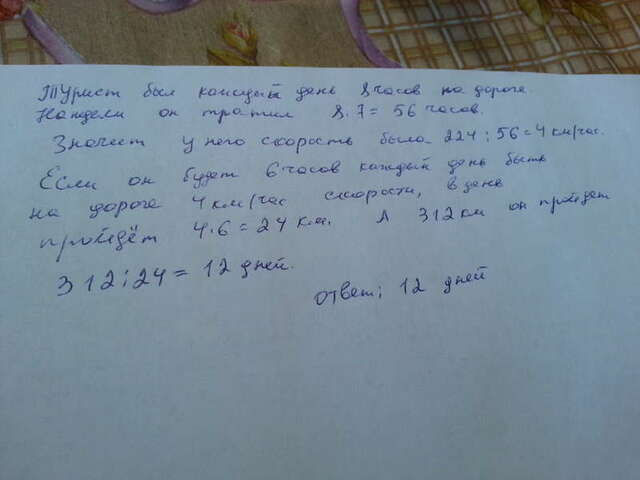 Турист был каждый день 8 часов на дороге.
На неделю он тратил 8·7=56 часов.
Значит у него скорость была 224:56=4 км/час.
Если он будет 6 часов каждый день быть
на дороге 4 км/час скорости, в день
пройдёт 4·6=24 км. А 312 км он пройдет
312:24=12 дней.
Ответ: 12 дней